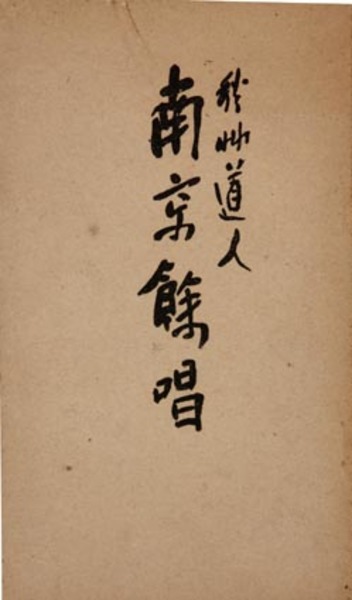 秋艸道人
南京餘唱